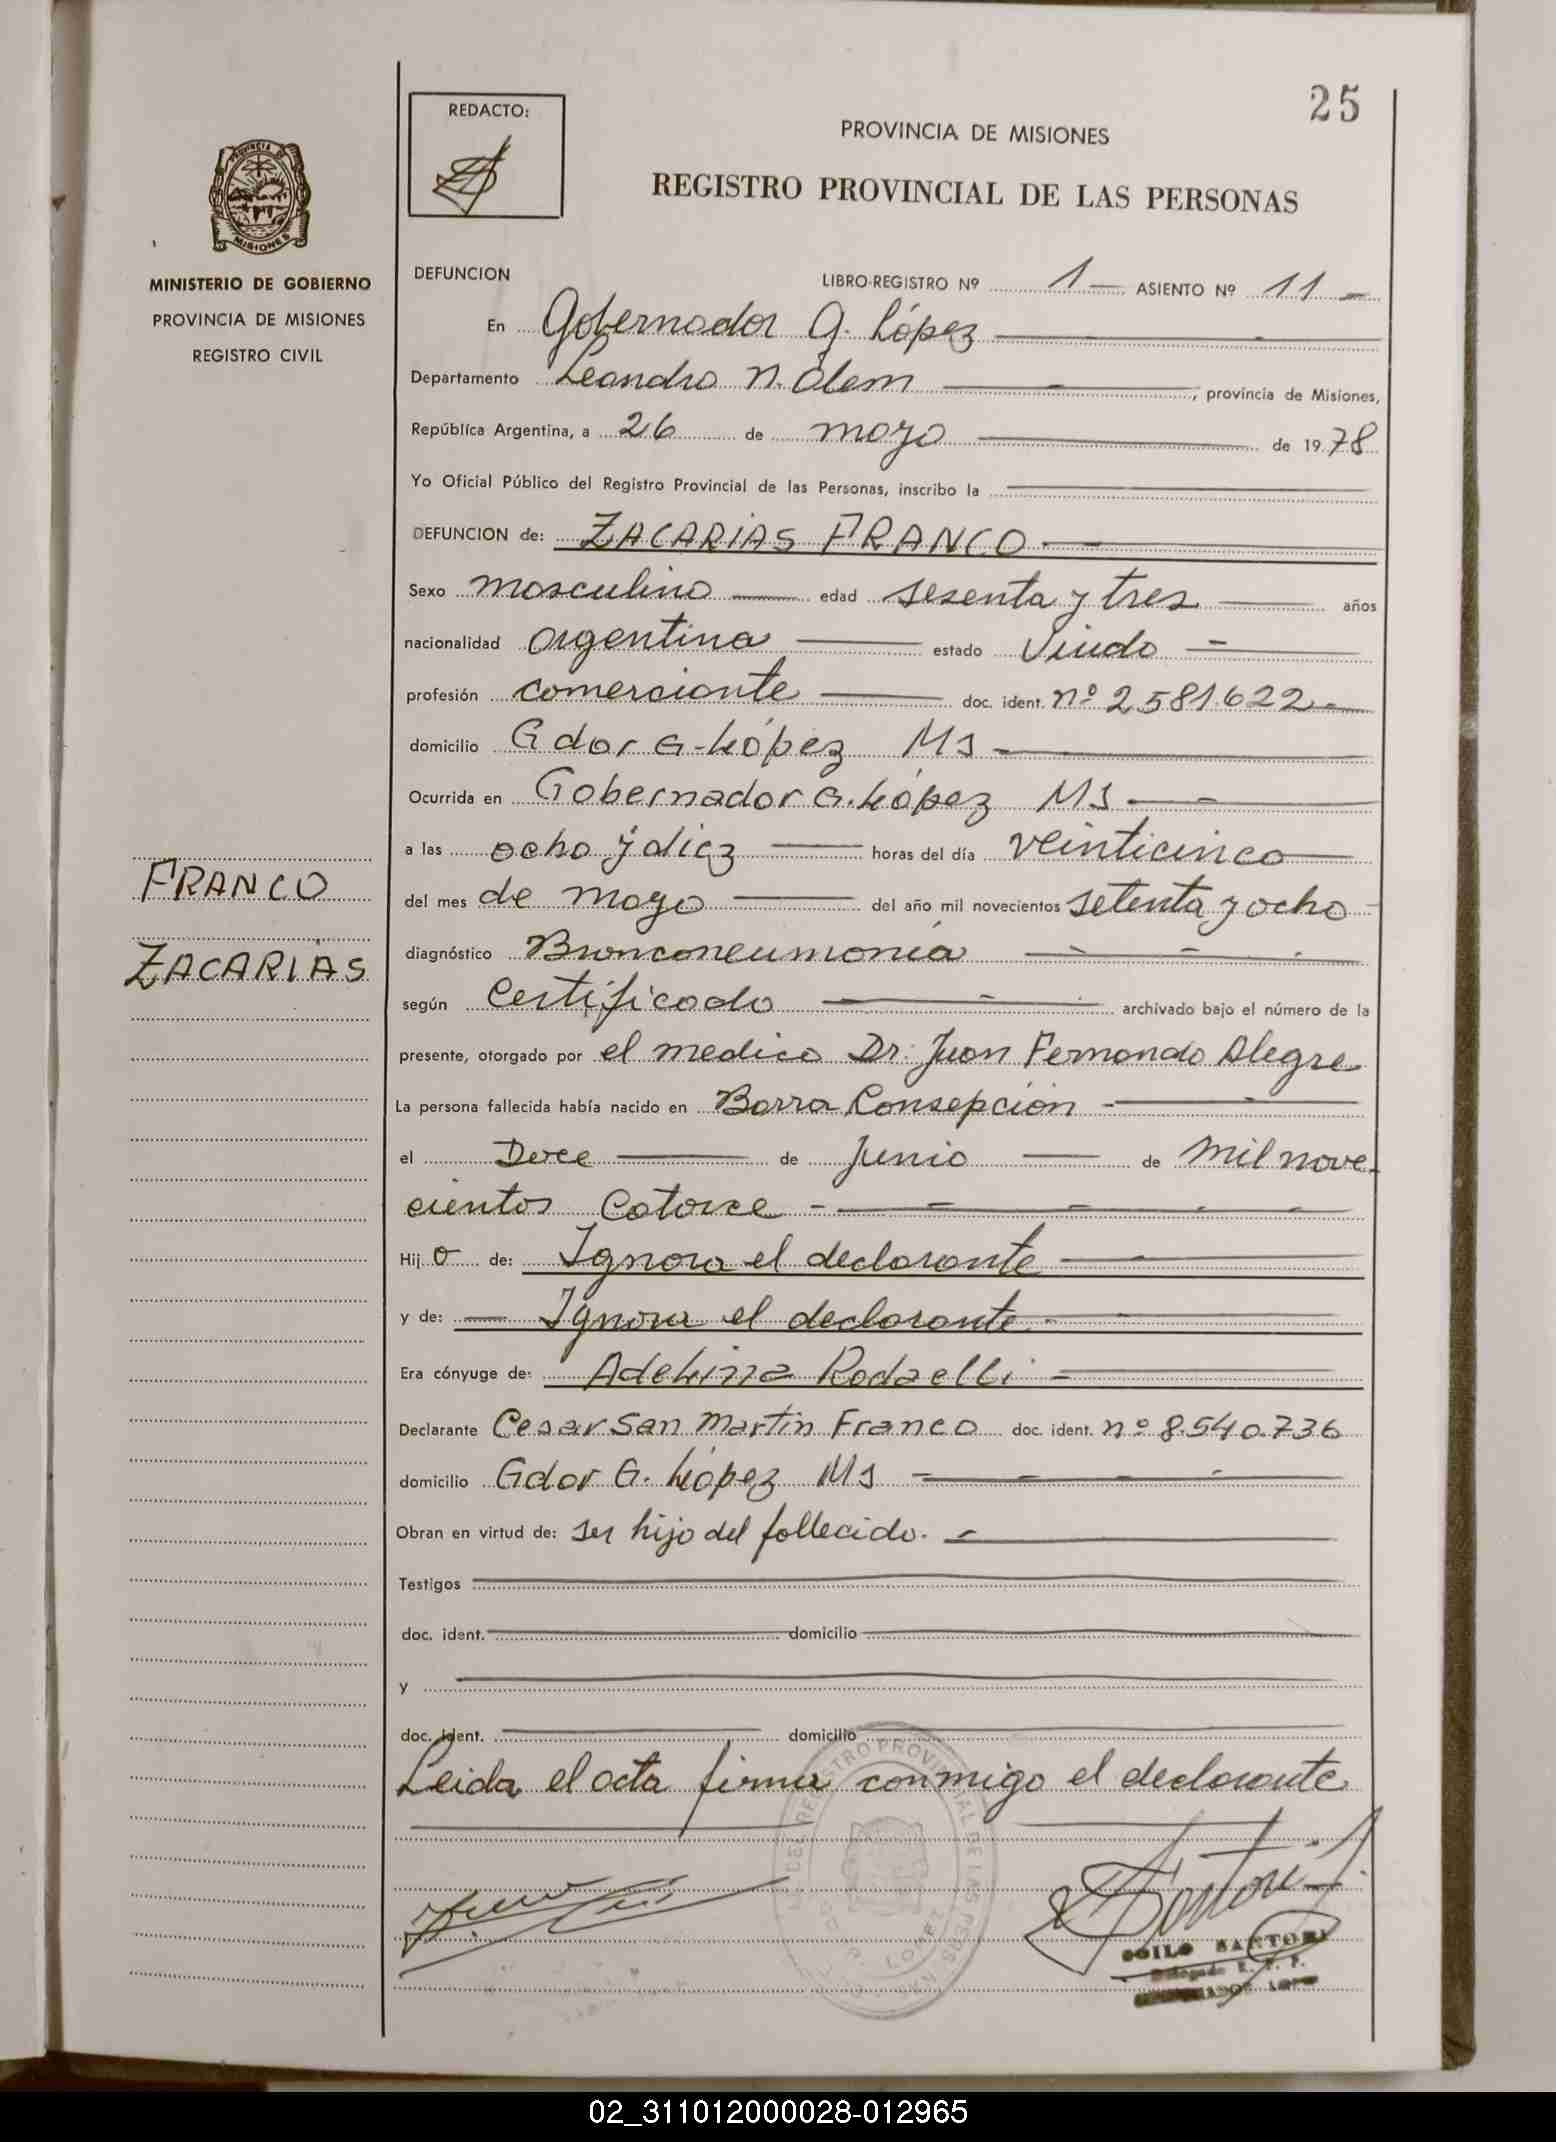 25
REDACTO:
PROVINCIA DE MISIONES
REGISTRO PROVINCIAL DE LAS PERSONAS
PROVINCIA DE
MISIONES
MINISTERIO DE GOBIERNO
PROVINCIA DE MISIONES
REGISTRO CIVIL
FRANCO
ZACARIAS
DEFUNCION LIBRO-REGISTRO Nº 1 ASIENTO Nº 11
En Gobernador G. López
Departamento Leandro N. Alem, provincia de Misiones,
República Argentina, a 26 de mayo de 1978
Yo Oficial Público del Registro Provincial de las Personas, inscribo la
DEFUNCION de: ZACARIAS FRANCO
Sexo masculino edad sesenta y tres años
nacionalidad argentina estado Viudo
profesión comerciante doc. ident. nº 2581.622
domicilio Gdor G. López Ms
Ocurrida en Gobernador G. López Ms
a las ocho y diez horas del día veinticinco
del mes de mayo del año mil novecientos setenta y ocho
diagnóstico Bronconeumonia
según Certificado archivado bajo el número de la
presente, otorgado por el medico Dr. Juan Fernando Alegre
La persona fallecida había nacido en Barra Consepción
el Doce de Junio de mil nove-
cientos Catorce
Hijo de: Ignora el declarante
y de: Ignora el declarante
Era cónyuge de: Adelina Rodaelli
Declarante Cesar San Martin Franco doc. ident. nº 8.540.736
domicilio Gdor G. López Ms
Obran en virtud de: ser hijo del fallecido.
Testigos
doc. ident. domicilio
y
doc. ident. domicilio
Leida el acta firma conmigo el declarante
DEL REGISTRO PROVINCIAL DE LAS PERSONAS
LOPEZ
SANTORI
02_311012000028-012965